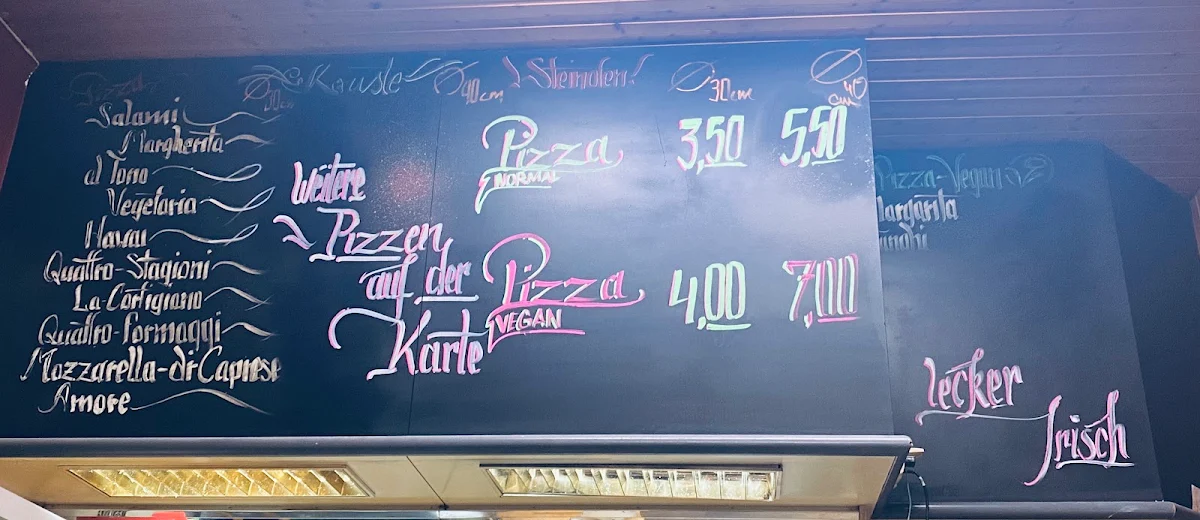 Pizza
Salami
Margherita
al Tono
Vegetaria
Hawai
Quattro-Stagioni
La-Cortigiano
Quattro-Formaggi
Mozzarella-di Caprese
Amore
40cm
Weitere
Pizzen
auf der
Karte
Steinofen!
30cm
40 cm
Pizza 3,50 5,50
NORMAL
Pizza 4,00 7,00
VEGAN
Pizza-Vegan
Margarita
lecker
frisch